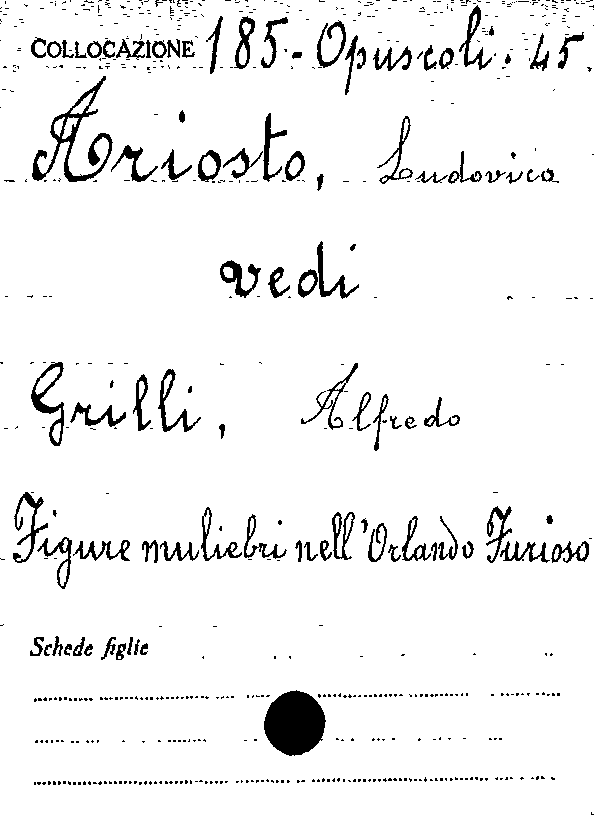 COLLOCAZIONE 185-Opuscoli. 45.
Ariosto, Ludovico
vedi
Grilli, Alfredo
Figure muliebri nell'Orlando Furioso
Schede figlie